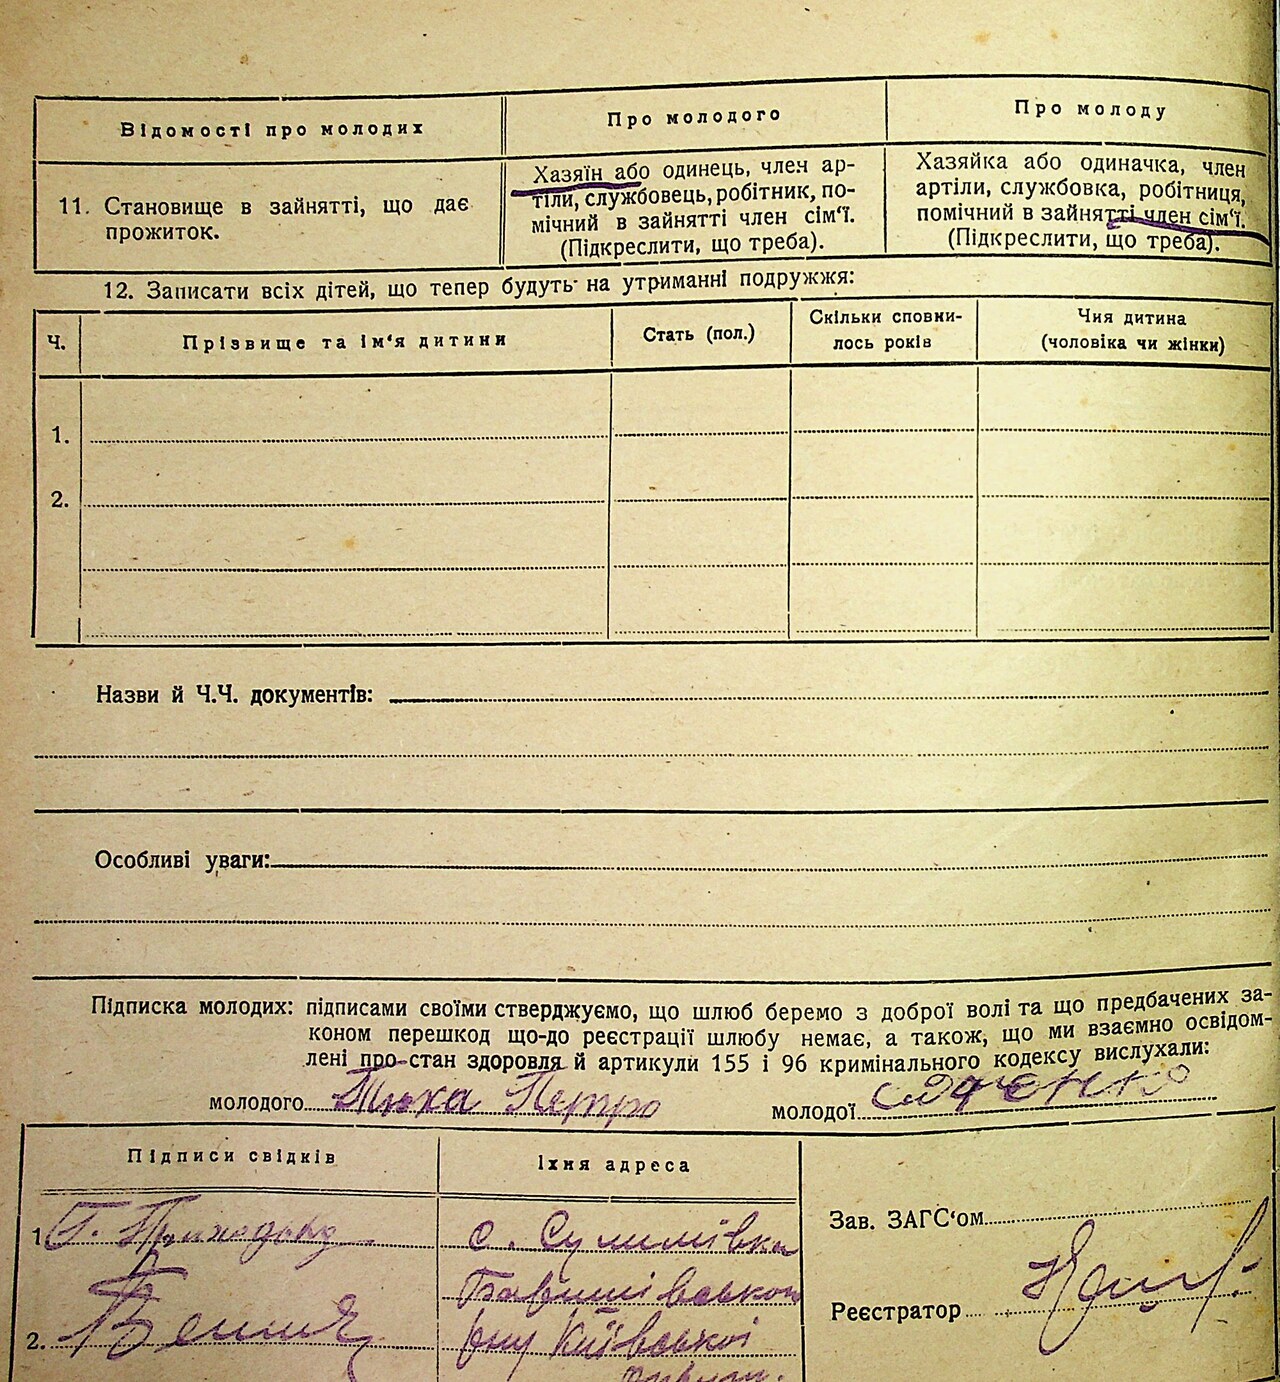 Відомості про молодих
Про молодого
Про молоду
11. Становище в зайнятті, що дає
прожиток.
Хазяїн або одинець, член ар-
тіли, службовець, робітник, по-
мічний в зайнятті член сім‘ї.
(Підкреслити, що треба).
Хазяйка або одиначка, член
артіли, службовка, робітниця,
помічний в зайнятті член сім‘ї.
(Підкреслити, що треба).
12. Записати всіх дітей, що тепер будуть на утриманні подружжя:
Ч.
Прізвище та ім‘я дитини
Стать (пол.)
Скільки сповни-
лось років
Чия дитина
(чоловіка чи жінки)
1.
2.
Назви й Ч.Ч. документів:
Особливі уваги:
Підписка молодих: підписами своїми стверджуємо, що шлюб беремо з доброї волі та що предбачених за-
коном перешкод що-до реєстрації шлюбу немає, а також, що ми взаємно освідом-
лені про-стан здоровля й артикули 155 і 96 кримінального кодексу вислухали:
молодого Тюха Петро
молодої
Підписи свідків
Їхня адреса
1. Г.
с. Сулимівка
2.
Київської
Зав. ЗАГС‘ом
Реєстратор